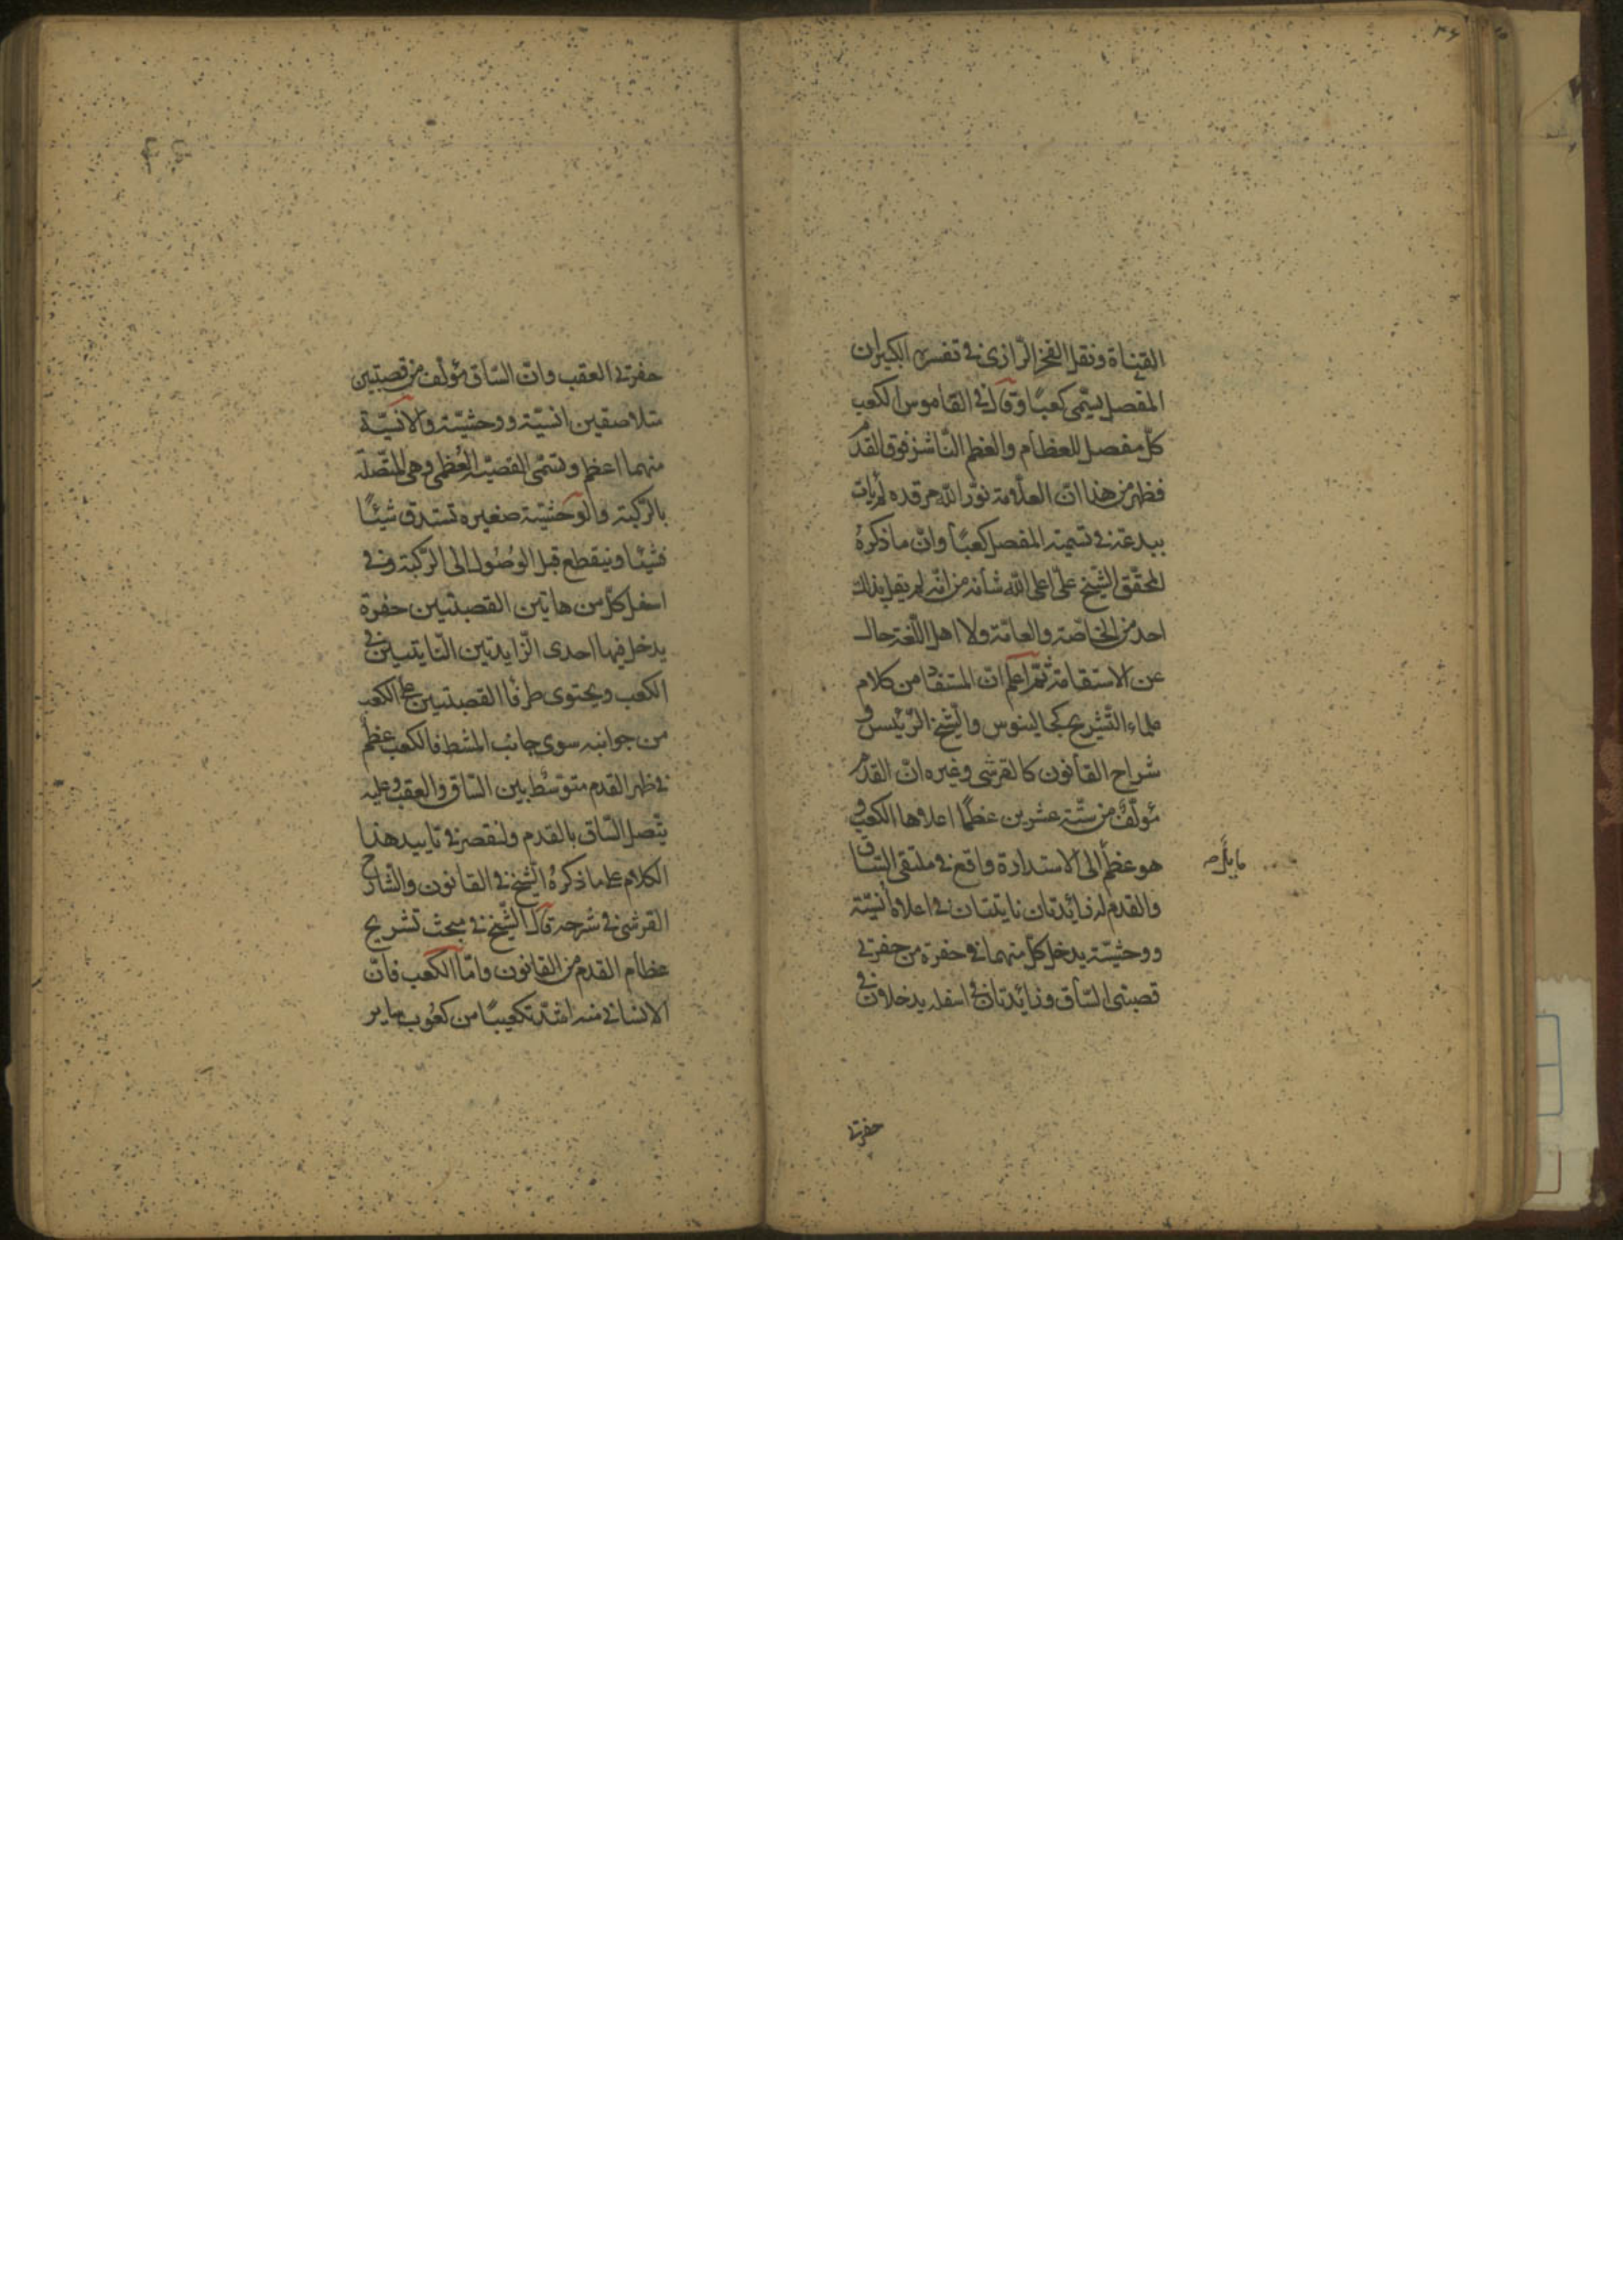 القناة ونقل الفخر الرازى فى تفسيره الكبير ان
المفصل يسمى كعبًا وقال فى القاموس الكعب
كل مفصل للعظام والعظم الناشز فوق القدم
فظهر من هذا انّ العلّامة نوّر الله مرقده لم يات
ببدعة فى تسمية المفصل كعبًا وانّ ما ذكره
المحقّق الشّيخ علىّ اعلى الله شأنه من انّه لم يقل بذلك
احد من الخاصّة والعامّة ولا اهل اللّغة خال
عن الاستقامة ثمّ اعلم انّ المستفاد من كلام
علماء التّشريح كجالينوس والشّيخ الرّئيس و
شراح القانون كالقرشى وغيره انّ القدم
مؤلّف من ستّة عشرين عظمًا اعلاها الكعب و
هو عظم الى الاستدارة واقع فى ملتقى السّاق
والقدم له زائدتان ناتيتان فى اعلاه انسيّة
ووحشيّة يدخل كلّ منهما فى حفرة من حفرتى
قصبتى السّاق وزائدتان فى اسفله يدخلان فى
حفرتى
حفرتى العقب وانّ السّاق مؤلّف من قصبتين
متلاصقين انسيّة ووحشيّة والانسيّة
منهما اعظم وتسمّى القصبة العُظمى وهى المتّصلة
بالرّكبة والوحشيّة صغيره تستدق شيئًا
فشيئًا وينقطع قبل الوُصُول الى الرّكبة وفى
اسفل كلّ من هاتين القصبتين حفرة
يدخل فيها احدى الزّايدتين النّايتتين فى
الكعب ويحتوى طرفا القصبتين على الكعب
من جوانبه سوى جانب المشط فالكعب عظم
فى ظهر القدم متوسّط بين السّاق والعقب وعليه
يتّصل السّاق بالقدم ولنقصر فى تاييد هذا
الكلام على ما ذكره الشّيخ فى القانون والشّارح
القرشى فى شرحه قال الشّيخ فى مبحث تشريح
عظام القدم من القانون وامّا الكعب فانّ
الانسانى منه اشدّ تكعيبًا من كعُوب ساير